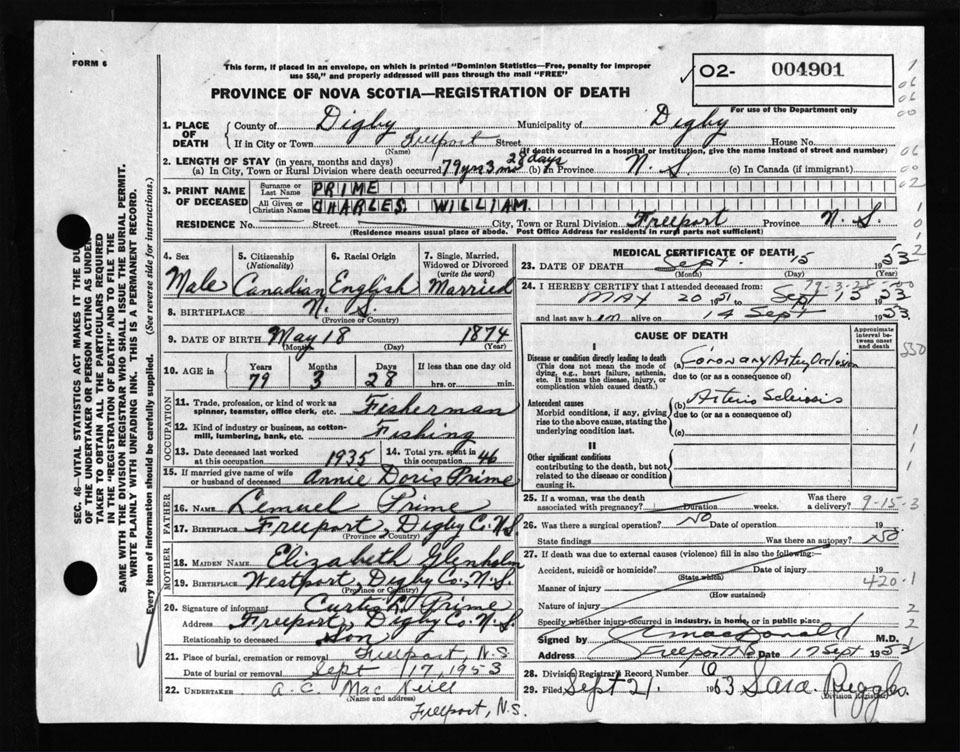 FORM 6
This form, if placed in an envelope, on which is printed "Dominion Statistics—Free, penalty for improper
use $50," and properly addressed will pass through the mail "FREE"
02- 004901
For use of the Department only
PROVINCE OF NOVA SCOTIA—REGISTRATION OF DEATH
1. PLACE OF DEATH County of Digby Municipality of Digby
If in City or Town Freeport Street House No.
(Name) (If death occurred in a hospital or institution, give the name instead of street and number)
2. LENGTH OF STAY (in years, months and days)
(a) In City, Town or Rural Division where death occurred 79 yrs 3 mos 28 days (b) in Province N. S. (c) In Canada (if immigrant)
3. PRINT NAME OF DECEASED
Surname or Last Name PRIME
All Given or Christian Names CHARLES. WILLIAM.
RESIDENCE No. Street City, Town or Rural Division Freeport Province N. S.
(Residence means usual place of abode. Post Office Address for residents in rural parts not sufficient)
SEC. 46—VITAL STATISTICS ACT MAKES IT THE DU
OF THE UNDERTAKER OR PERSON ACTING AS UNDER
TAKER TO OBTAIN ALL THE PARTICULARS REQUIRED
IN THE "REGISTRATION OF DEATH" AND TO FILE THE
SAME WITH THE DIVISION REGISTRAR WHO SHALL ISSUE THE BURIAL PERMIT.
WRITE PLAINLY WITH UNFADING INK. THIS IS A PERMANENT RECORD.
Every item of information should be carefully supplied. (See reverse side for instructions.)
4. Sex 5. Citizenship (Nationality) 6. Racial Origin 7. Single, Married, Widowed or Divorced (write the word)
Male Canadian English Married
8. BIRTHPLACE N. S.
(Province or Country)
9. DATE OF BIRTH May 18 1874
(Month) (Day) (Year)
10. AGE in Years Months Days If less than one day old
79 3 28 hrs. or min.
OCCUPATION
11. Trade, profession, or kind of work as spinner, teamster, office clerk, etc. Fisherman
12. Kind of industry or business, as cotton-mill, lumbering, bank, etc. Fishing
13. Date deceased last worked at this occupation 1935 14. Total yrs. spent in this occupation 46
15. If married give name of wife or husband of deceased Annie Doris Prime
FATHER
16. Name Lemuel Prime
17. Birthplace Freeport, Digby Co. N.S.
(Province or Country)
MOTHER
18. MAIDEN NAME Elizabeth Glenholm
19. BIRTHPLACE Westport, Digby Co. N.S.
(Province or Country)
20. Signature of informant Curtis L. Prime
Address Freeport, Digby Co. N. S.
Relationship to deceased Son
21. Place of burial, cremation or removal Freeport, N.S
Date of burial or removal Sept 17, 1953
22. UNDERTAKER A. C. Mac Neill
(Name and address)
Freeport, N.S.
MEDICAL CERTIFICATE OF DEATH
23. DATE OF DEATH Sept. 15 1953
(Month) (Day) (Year)
79-3-28-00
24. I HEREBY CERTIFY that I attended deceased from:
May 20 1951 to Sept 15 1953
and last saw him alive on 14 Sept 1953.
CAUSE OF DEATH
Approximate interval between onset and death
I
Disease or condition directly leading to death
(This does not mean the mode of dying, e.g., heart failure, asthenia, etc. It means the disease, injury, or complication which caused death.)
(a) Coronary Artery Occlusion
due to (or as a consequence of)
Antecedent causes
Morbid conditions, if any, giving rise to the above cause, stating the underlying condition last.
(b) Arterio Sclerosis
due to (or as a consequence of)
(c)
II
Other significant conditions
contributing to the death, but not related to the disease or condition causing it.
25. If a woman, was the death associated with pregnancy? Duration weeks. Was there a delivery? 9-15-3
26. Was there a surgical operation? No Date of operation 19
State findings Was there an autopsy? No
27. If death was due to external causes (violence) fill in also the following:—
Accident, suicide or homicide? Date of injury 19
(State which)
Manner of injury 420-1
(How sustained)
Nature of injury
Specify whether injury occurred in industry, in home, or in public place
Signed by A MacDonald M.D.
Address Freeport NS Date 17 Sept 1953
28. Division Registrar's Record Number 6
29. Filed Sept 21. 1953 Sara. Ruggles.
(Division Registrar)